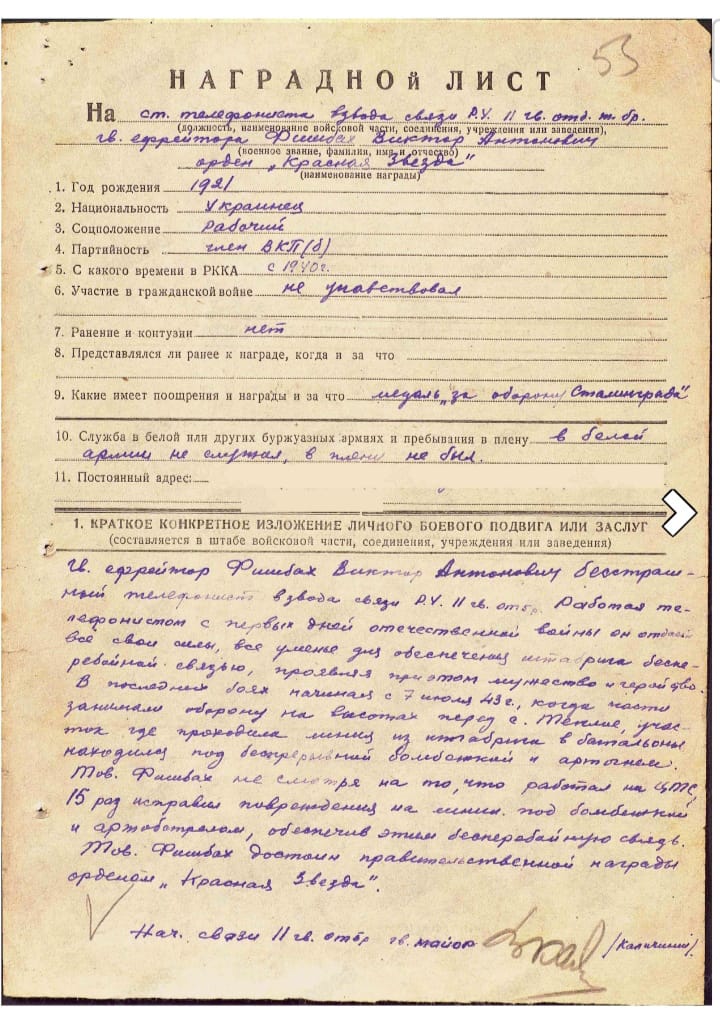 53
НАГРАДНОЙ ЛИСТ
На ст. телефониста взвода связи Р.У. 11 гв. отд. т. бр.
(должность, наименование войсковой части, соединения, учреждения или заведения),
гв. ефрейтора Фишбах Виктор Антонович
(военное звание, фамилия, имя и отчество)
орден „Красная Звезда"
(наименование награды)
1. Год рождения 1921
2. Национальность Украинец
3. Соцположение Рабочий
4. Партийность член ВКП(б)
5. С какого времени в РККА с 1940г.
6. Участие в гражданской войне не учавствовал
7. Ранение и контузии нет
8. Представлялся ли ранее к награде, когда и за что
9. Какие имеет поощрения и награды и за что медаль „за оборону Сталинграда"
10. Служба в белой или других буржуазных армиях и пребывания в плену в белой
армии не служил, в плену не был.
11. Постоянный адрес:
1. КРАТКОЕ КОНКРЕТНОЕ ИЗЛОЖЕНИЕ ЛИЧНОГО БОЕВОГО ПОДВИГА ИЛИ ЗАСЛУГ
(составляется в штабе войсковой части, соединения, учреждения или заведения)
Гв. ефрейтор Фишбах Виктор Антонович бесстраш-
ный телефонист взвода связи Р.У. 11 гв. отбр. Работая те-
лефонистом с первых дней отечественной войны он отдает
все свои силы, все уменье для обеспечения штабрига беспе-
ребойной связью, проявляя при этом мужество и геройство.
В последних боях начиная с 7 июля 43г., когда части
занимали оборону на высотах перед с. Теплое, учас-
ток где проходила линия из штабрига в батальоны
находился под беспрерывной бомбежкой и артогнем.
Тов. Фишбах не смотря на то, что работал на ЦТС
15 раз исправил повреждения на линии под бомбежкой
и артобстрелом, обеспечив этим бесперебойную связь.
Тов. Фишбах достоин правительственной награды
орденом „Красная Звезда".
Нач. связи 11 гв. отбр гв. майор